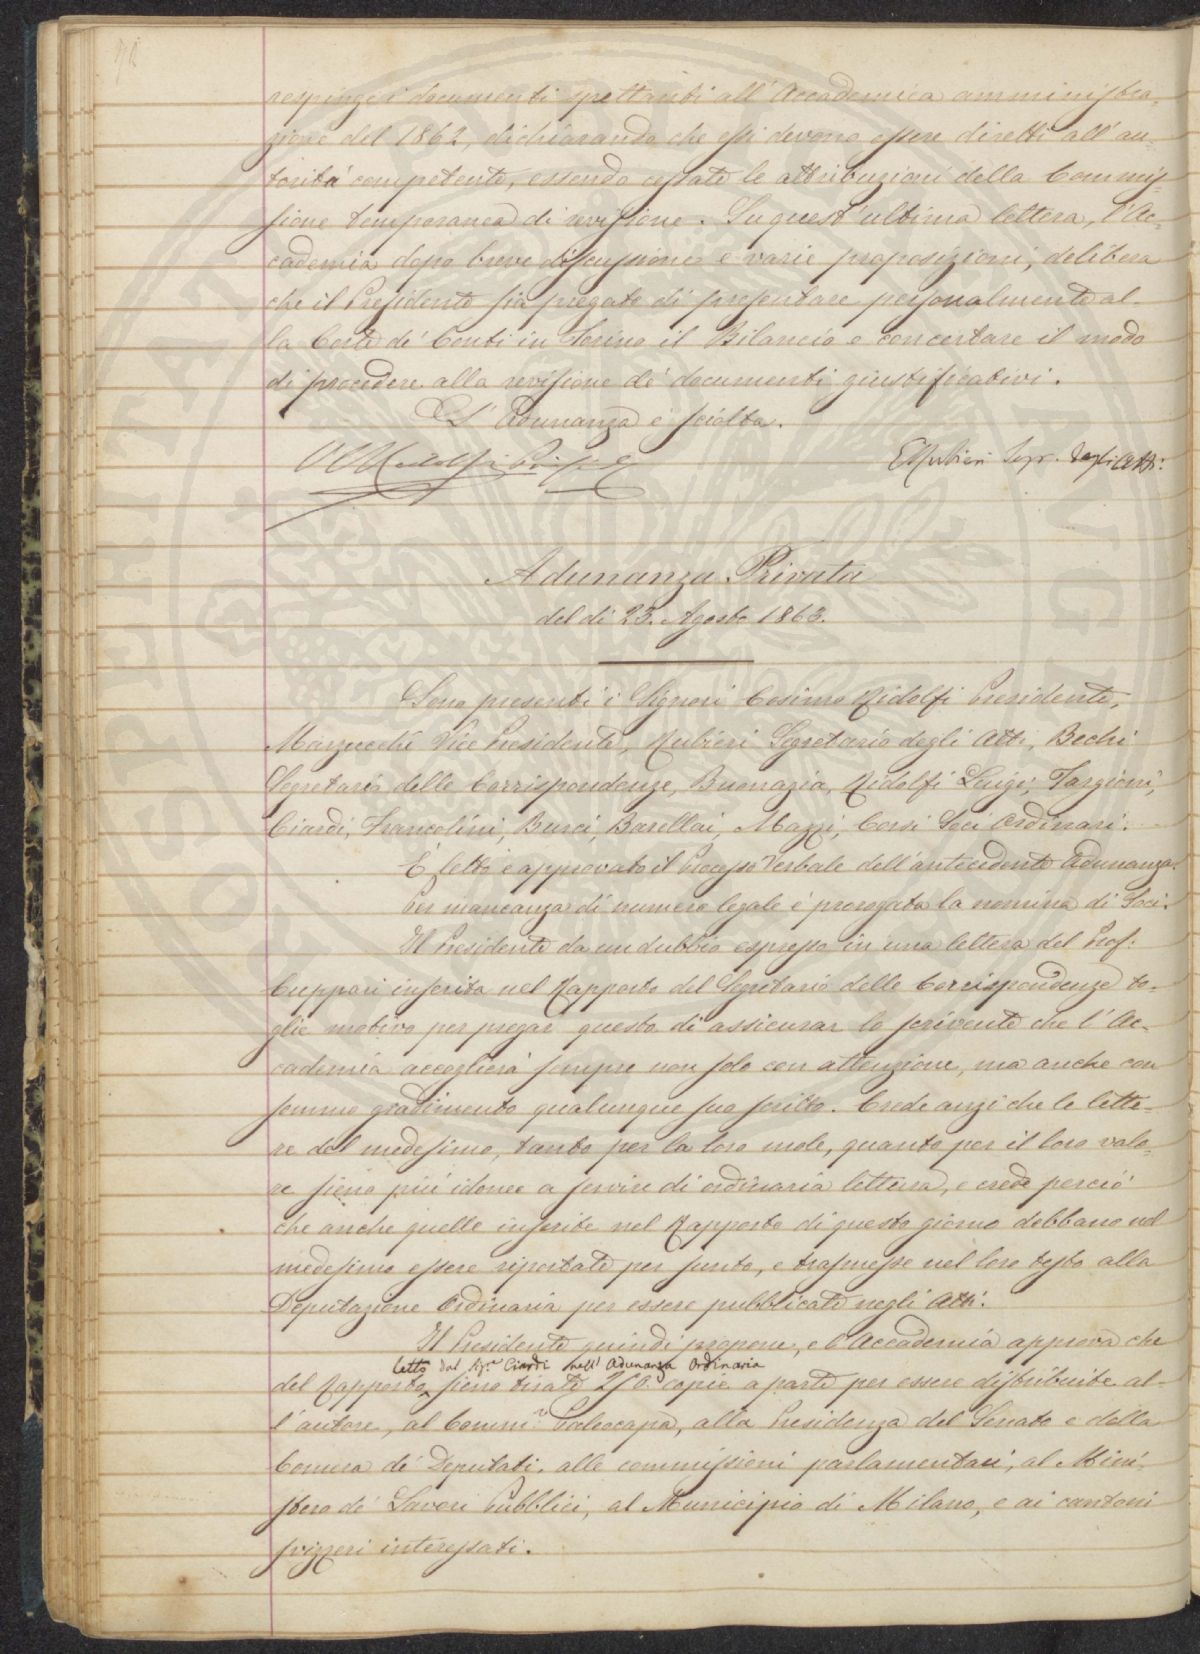 respinge i documenti spettanti all'Accademica amministra-
zione del 1862, dichiarando che essi devono essere diretti all'au-
torità competente, essendo cessate le attribuzioni della Commis-
sione temporanea di revisione. Su quest'ultima lettera, l'Ac-
cademia dopo breve discussione e varie proposizioni, delibera
che il Presidente sia pregato di presentare personalmente al-
la Corte de' Conti in Torino il Bilancio e concertare il modo
di procedere alla revisione de' documenti giustificativi.
L'Adunanza è sciolta.
Ridolfi
Rubieri Segr. degli Atti.
Adunanza Privata
del dì 23. Agosto 1863.
Sono presenti i Signori Cosimo Ridolfi Presidente,
Marzucchi Vice Presidente, Rubieri Segretario degli Atti, Bechi
Segretario delle Corrispondenze, Buonazia, Ridolfi Luigi, Targioni,
Ciardi, Francolini, Burci, Barellai, Mazzi, Corsi Soci Ordinari.
È letto e approvato il Processo Verbale dell'antecedente Adunanza.
Per mancanza di numero legale è prorogata la nomina di Soci.
Il Presidente da un dubbio espresso in una lettera del Prof.
Cuppari inserita nel Rapporto del Segretario delle Corrispondenze to-
glie motivo per pregar questo di assicurar lo scrivente che l'Ac-
cademia accoglierà sempre non solo con attenzione, ma anche con
sommo gradimento qualunque suo scritto. Crede anzi che le lette-
re del medesimo, tanto per la loro mole, quanto per il loro valo-
re sieno più idonee a servire di ordinaria lettura, e crede perciò
che anche quelle inserite nel Rapporto di questo giorno debbano nel
medesimo essere riportate per sunto, e trasmesse nel loro testo alla
Deputazione Ordinaria per essere pubblicate negli Atti.
Il Presidente quindi propone, e l'Accademia approva che
letto dal Sig.r Ciardi nell'Adunanza Ordinaria
del Rapporto sieno tirate 250 copie a parte per essere distribuite al-
l'autore, al Comm.r Paleocapa, alla Presidenza del Senato e della
Camera de' Deputati, alle commissioni parlamentari, al Mini-
stero de' Lavori Pubblici, al Municipio di Milano, e ai cantoni
svizzeri interessati.